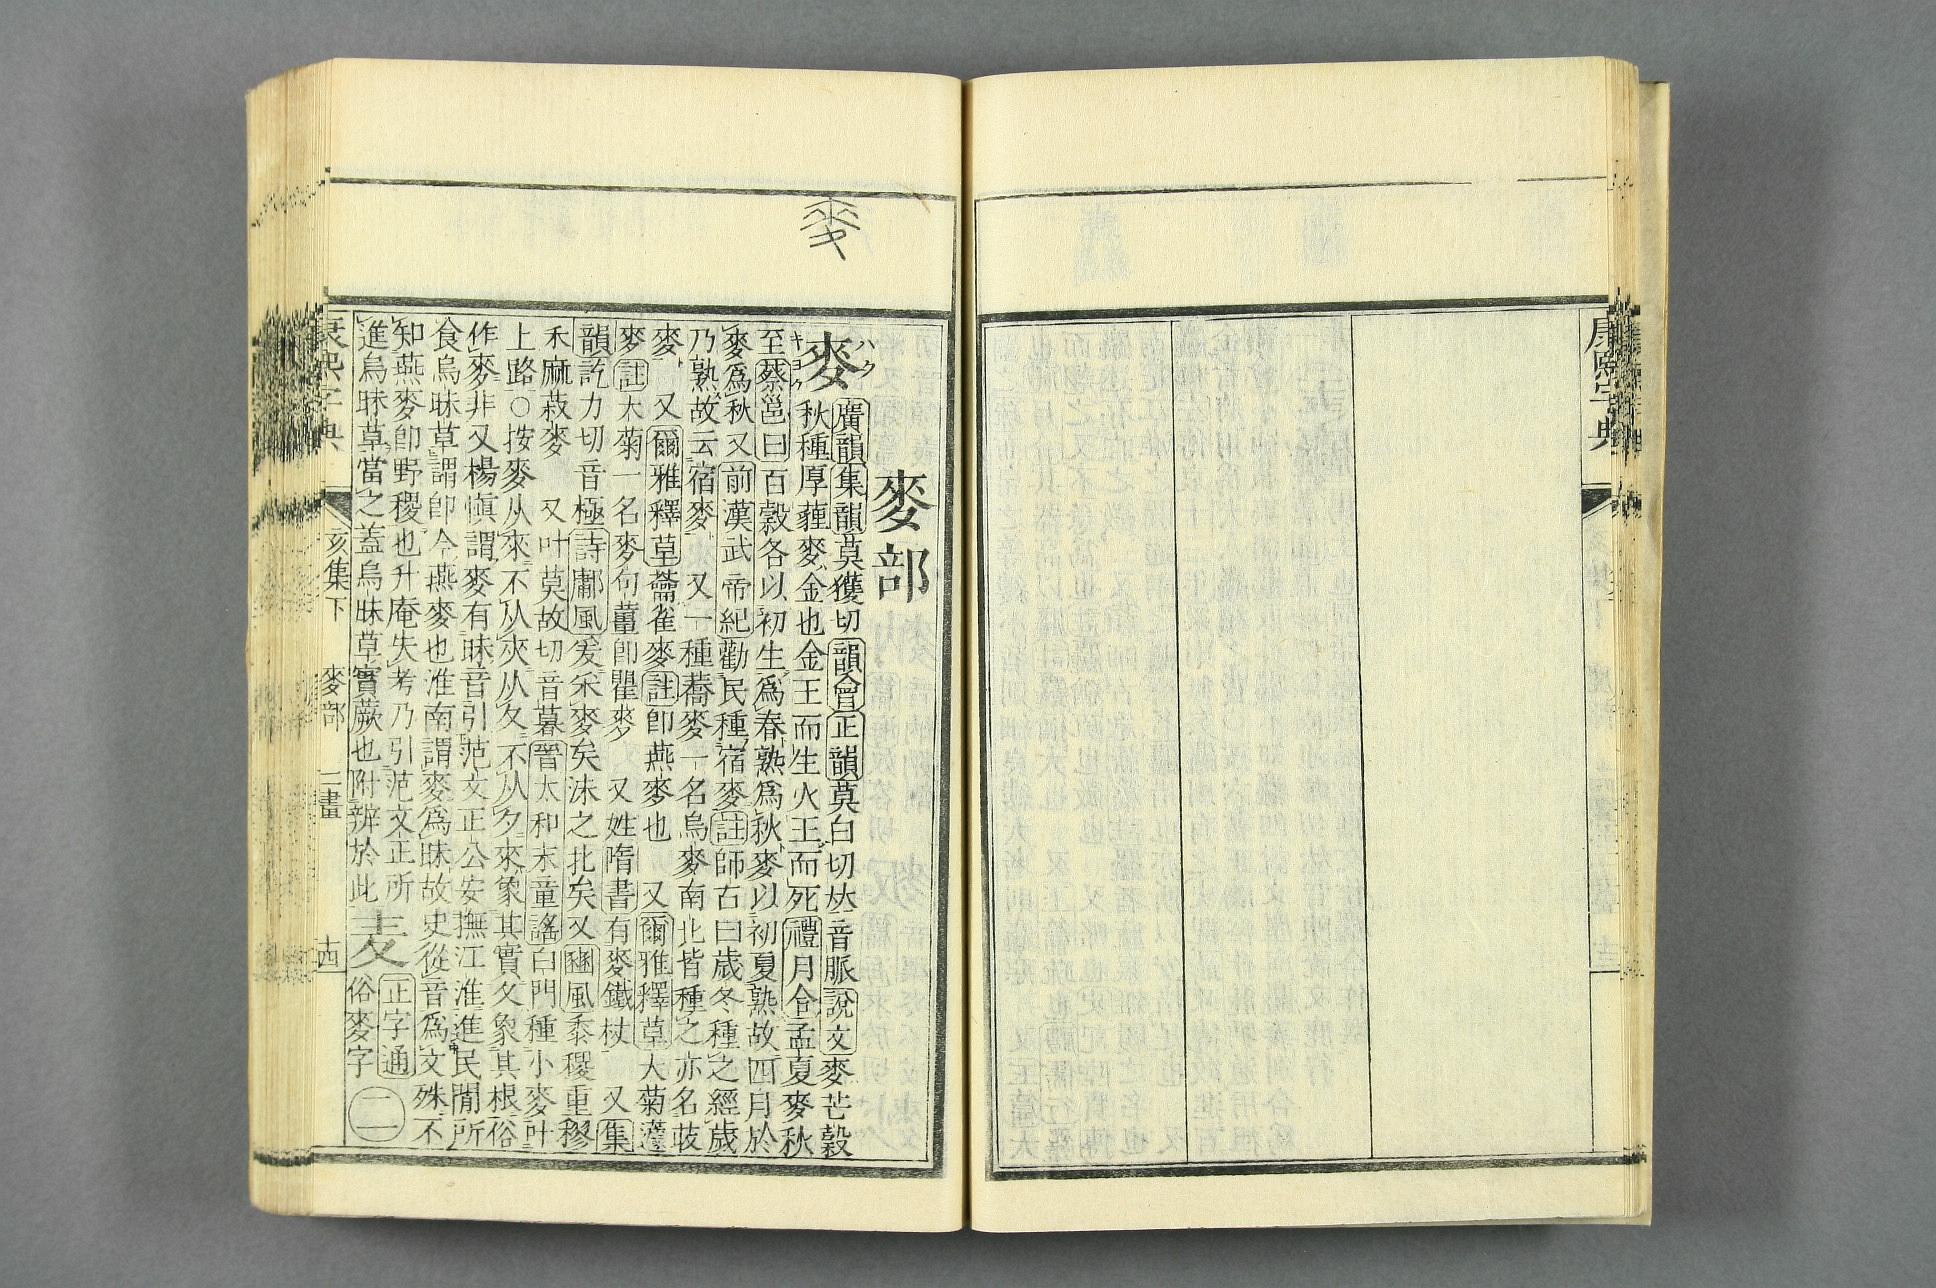 康熙字典
麥部
麥
ハク
キヨク
廣韻集韻莫獲切韻會正韻莫白切𠀤音脈說文麥芒穀
秋種厚薶麥金也金王而生火王而死禮月令孟夏麥秋
至蔡邕曰百穀各以初生爲春熟爲秋麥以初夏熟故四月於
麥爲秋又前漢武帝紀勸民種宿麥註師古曰歲冬種之經歲
乃熟故云宿麥 又一種蕎麥一名烏麥南北皆種之亦名荍
麥 又爾雅釋草蘥雀麥註卽燕麥也 又爾雅釋草大菊蘧
麥註大菊一名麥句薑卽瞿麥 又姓隋書有麥鐵杖 又集
韻訖力切音極詩鄘風爰采麥矣沬之北矣又豳風黍稷重穋
禾麻菽麥 又叶莫故切音暮晉太和末童謠白門種小麥叶
上路○按麥从來不从夾从夊不从夕來象其實夊象其根俗
作麥非又楊愼謂麥有昧音引范文正公安撫江淮進民閒所
食烏昧草謂卽今燕麥也淮南謂麥爲昧故史從音爲文殊不
知燕麥卽野稷也升庵失考乃引范文正所
進烏昧草當之蓋烏昧草實蕨也附辨於此
麦
正字通
俗麥字
二
康熙字典
亥集下
麥部
二畫
十四